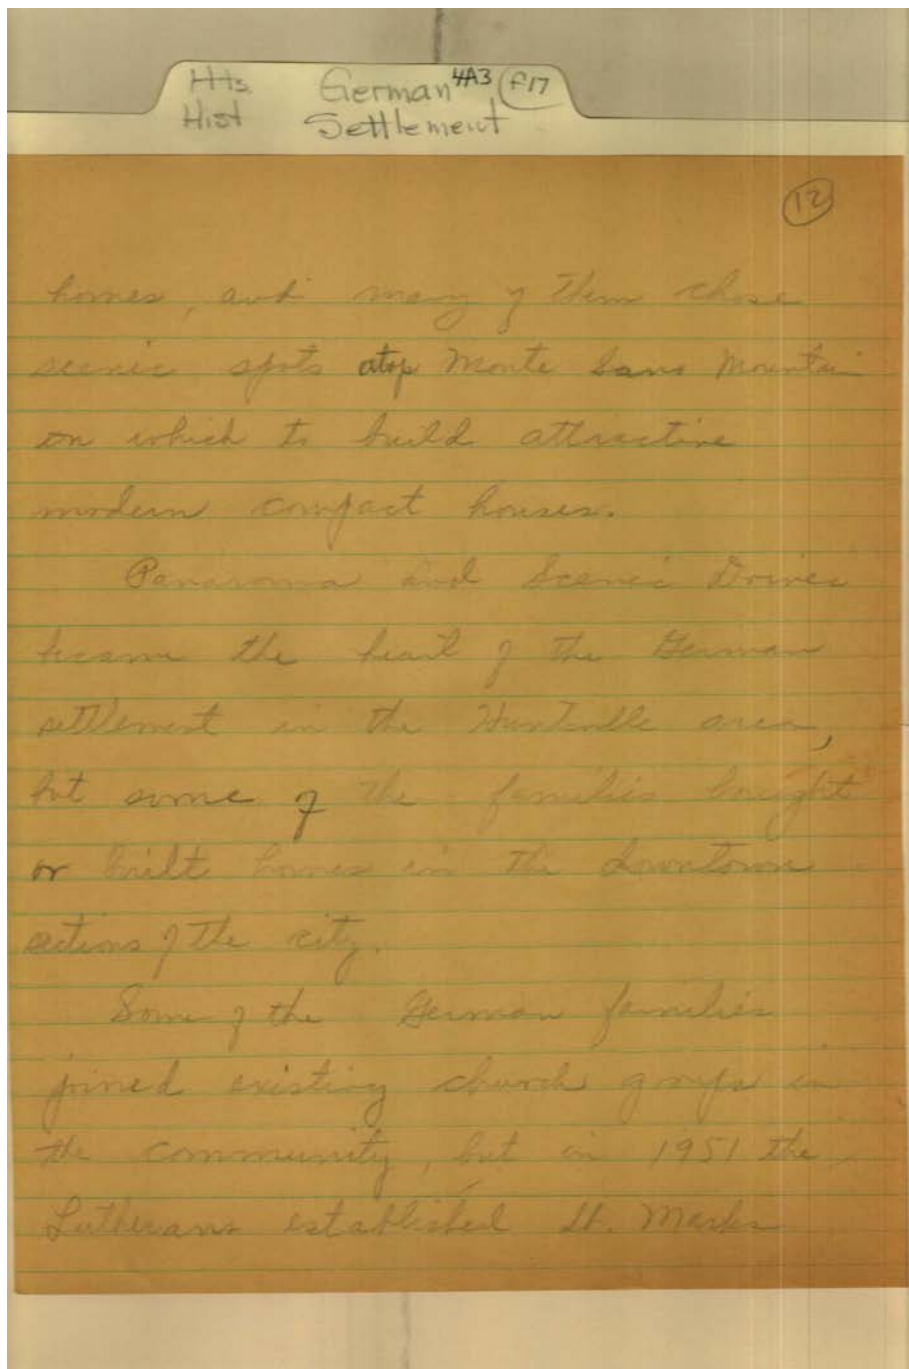 Hts. German 4A3 F17
Hist Settlement
12
homes, and many of them chose
scenic spots atop Monte Sano Mountain
on which to build attractive
modern compact houses.
Panaroma and Scenic Drives
became the heart of the German
settlement in the Huntsville area,
but some of the families bought
or built homes in the downtown
sections of the city.
Some of the German families
joined existing church groups in
the community, but in 1951 the
Lutherans established St. Marks